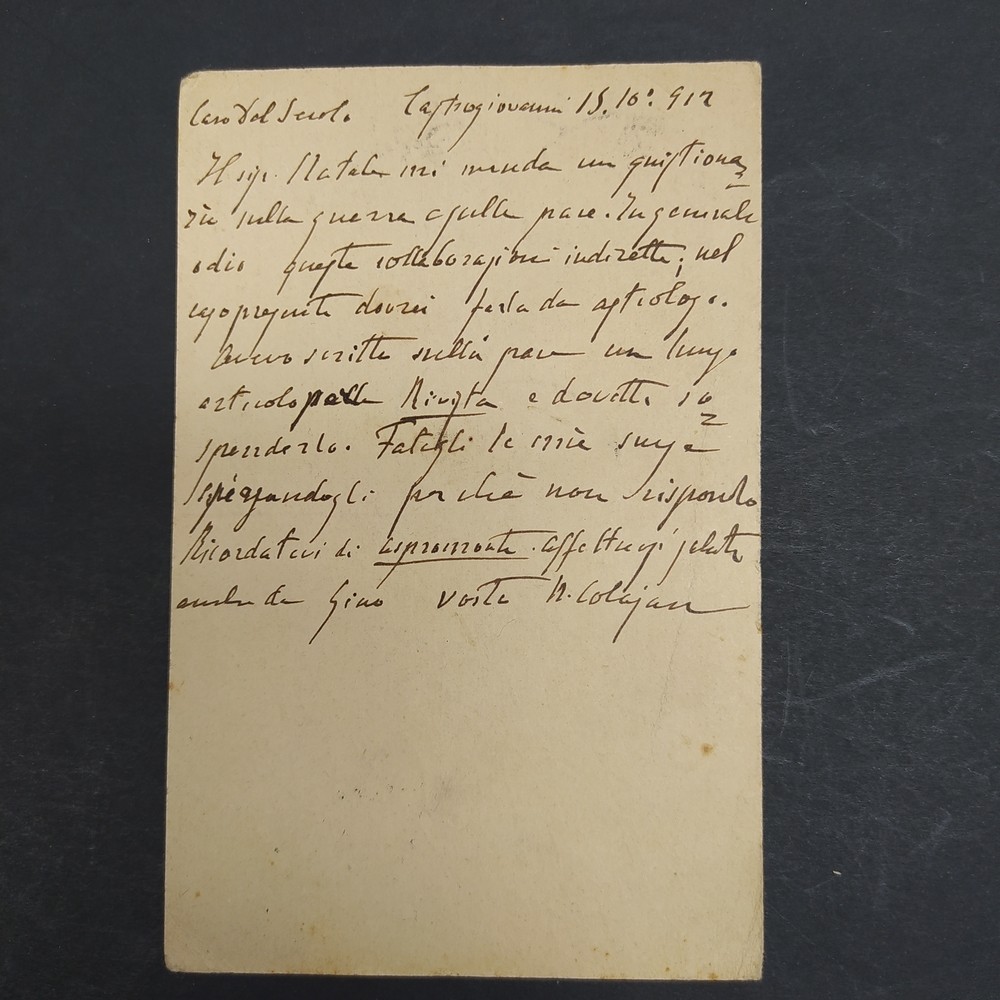 Caro Del Secolo Castrogiovanni 15. 10. 917
Il sig. Natale mi manda un quistiona=
rio sulla guerra e sulla pace. In generale
odio queste collaborazioni indirette; nel
caso presente dovrei farla da astrologo.
Avevo scritto sulla pace un lungo
articolo pella Rivista e dovetti so=
spenderlo. Fategli le mie scuse
spiegandogli perchè non rispondo
Ricordatevi di Aspromonte. Affettuosi saluti
anche da Gino vostro N. Colajanni